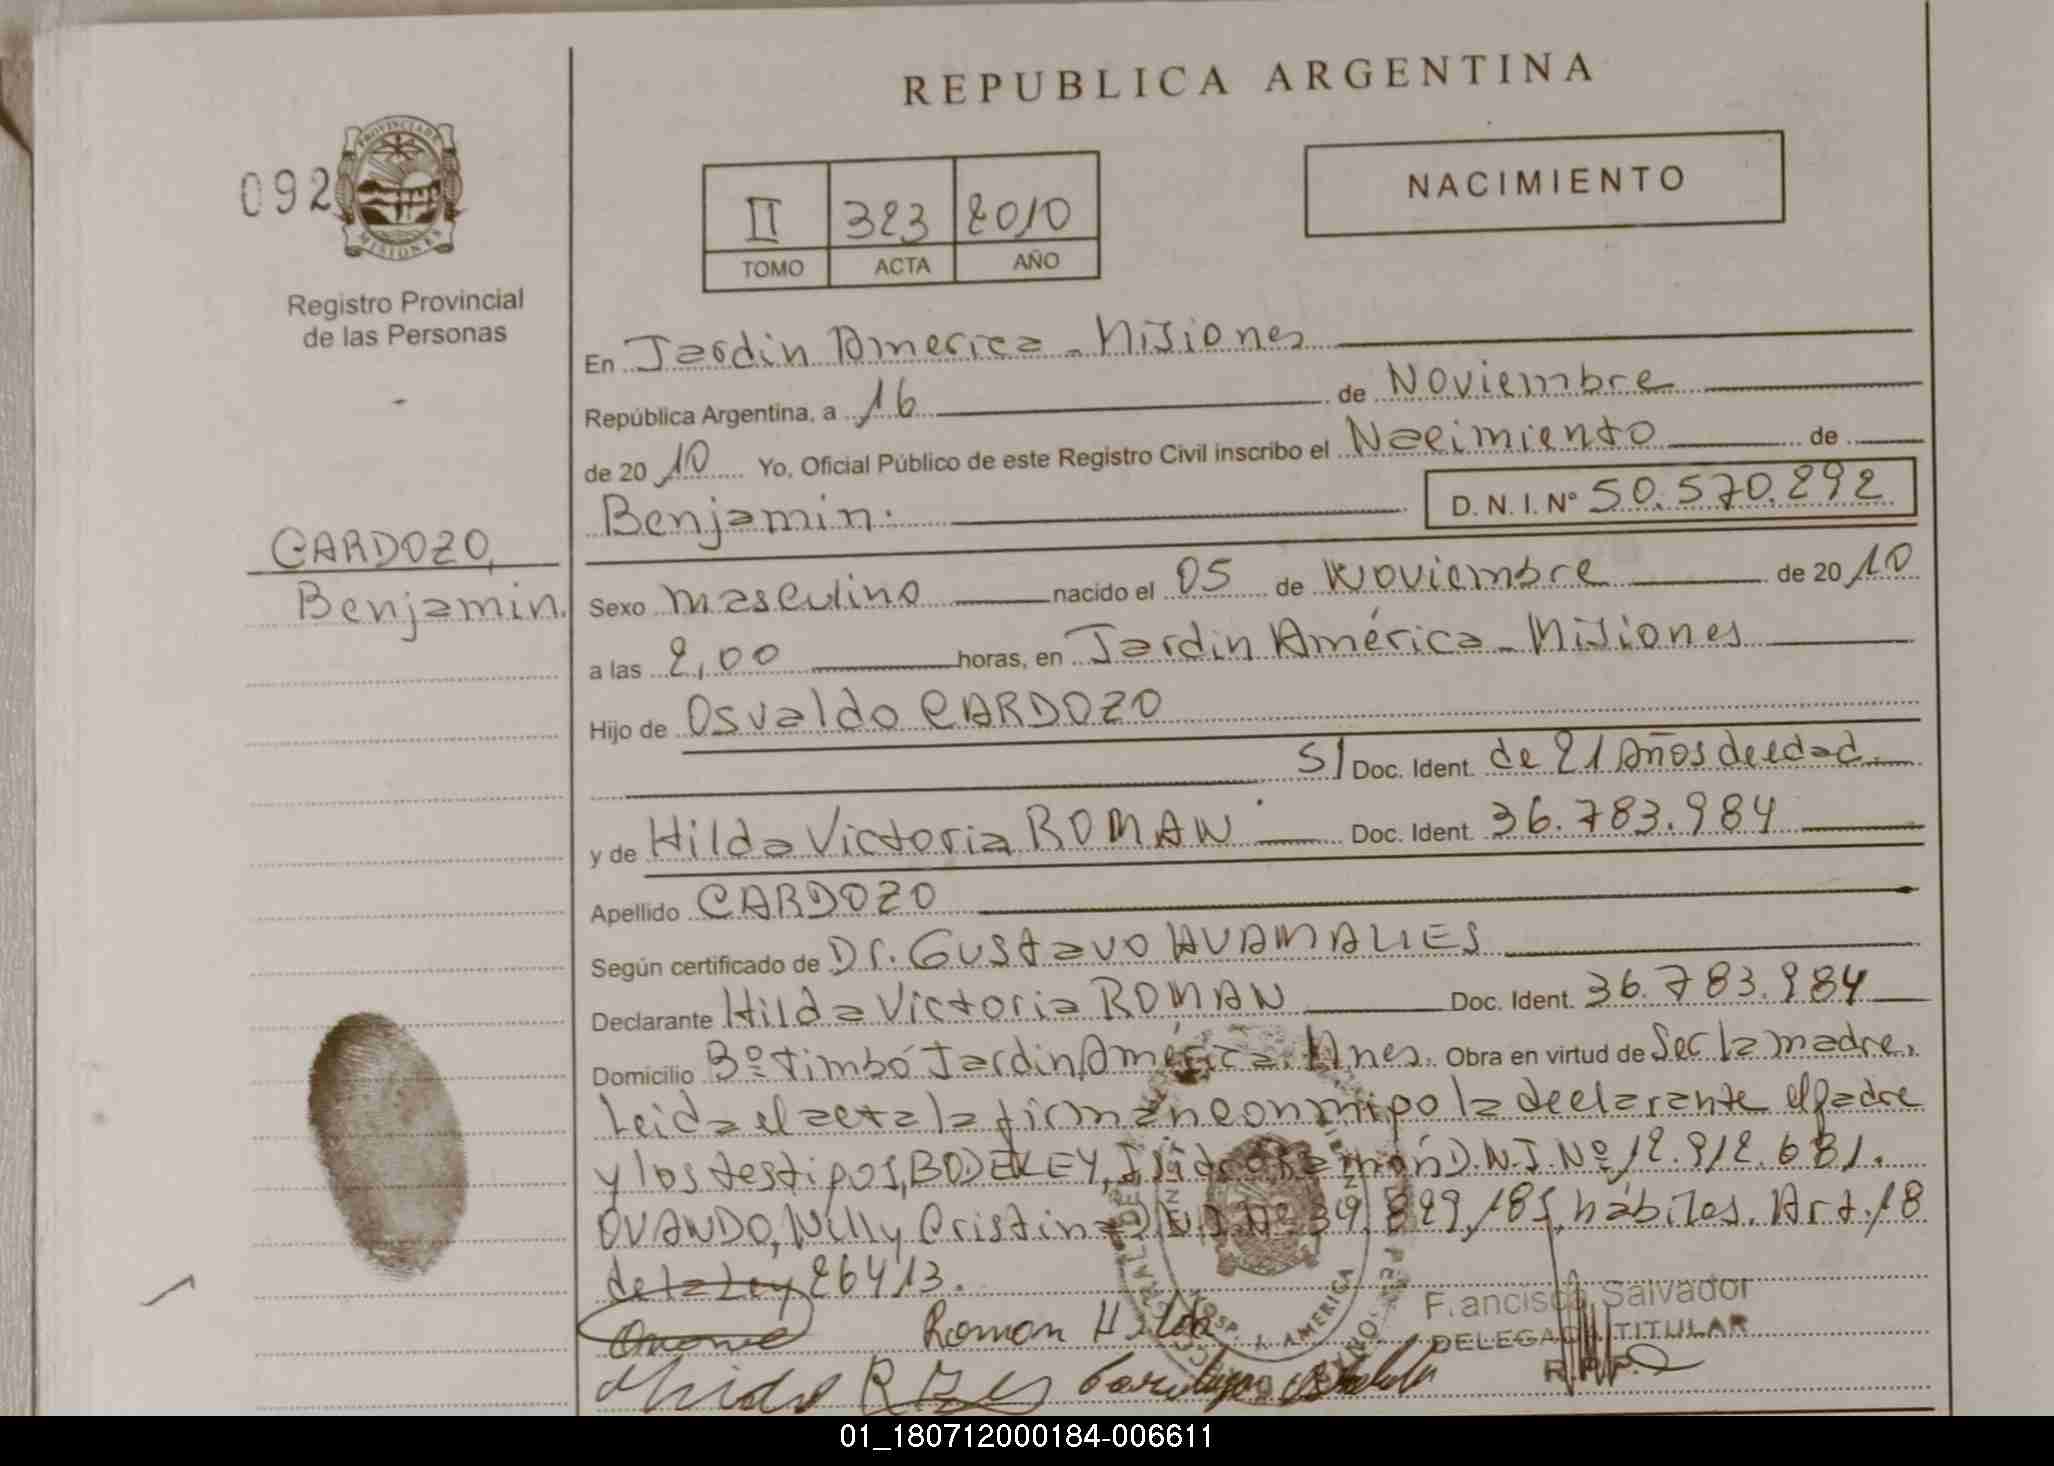 REPUBLICA ARGENTINA
092
PROVINCIA DE
MISIONES
Registro Provincial
de las Personas
II 323 2010
TOMO ACTA AÑO
NACIMIENTO
En Jardin America - Misiones
República Argentina, a 16 de Noviembre
de 2010 Yo, Oficial Público de este Registro Civil inscribo el Nacimiento de
Benjamin. D. N. I. N° 50.570.292
CARDOZO,
Benjamin.
Sexo masculino nacido el 05 de Noviembre de 2010
a las 2,00 horas, en Jardin América - Misiones
Hijo de Osvaldo CARDOZO
S/ Doc. Ident. de 21 Años de edad.
y de Hilda Victoria ROMAN Doc. Ident. 36.783.984
Apellido CARDOZO
Según certificado de Dr. Gustavo HUAMALIES
Declarante Hilda Victoria ROMAN Doc. Ident. 36.783.984
Domicilio Bº timbó Jardin América. Mnes. Obra en virtud de Ser la madre,
Leida el acta la firman conmigo la declarante el padre
y los testigos, Ramón D.N.I. Nº 12.912.681.
OVANDO, Nilly Cristina D.N.I. Nº 39.829.185, hábiles. Art. 18
de la Ley 26413.
Roman Hilda
Francisco Salvador
DELEGADO TITULAR
R.P.P.
J. AMERICA
01_180712000184-006611